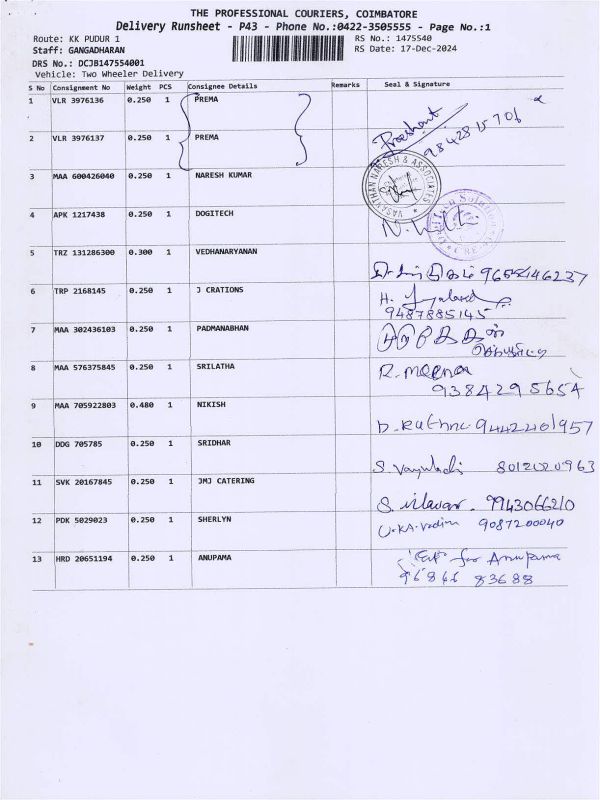 THE PROFESSIONAL COURIERS, COIMBATORE
Delivery Runsheet - P43 - Phone No.:0422-3505555 - Page No.:1
Route: KK PUDUR 1 RS No.: 1475540
Staff: GANGADHARAN RS Date: 17-Dec-2024
DRS No.: DCJB147554001
Vehicle: Two Wheeler Delivery
S No Consignment No Weight PCS Consignee Details Remarks Seal & Signature
1 VLR 3976136 0.250 1 PREMA
Prashant 9842815706
2 VLR 3976137 0.250 1 PREMA
3 MAA 600426040 0.250 1 NARESH KUMAR
VASANTHAN NARESH & ASSOCIATES
4 APK 1217438 0.250 1 DOGITECH
5 TRZ 131286300 0.300 1 VEDHANARYANAN
9655146237
6 TRP 2168145 0.250 1 J CRATIONS
H.
9487885145
7 MAA 302436103 0.250 1 PADMANABHAN
8 MAA 576375845 0.250 1 SRILATHA
R. meena
9384295654
9 MAA 705922803 0.480 1 NIKISH
9442401957
10 DDG 705785 0.250 1 SRIDHAR
8012020963
11 SVK 20167845 0.250 1 JMJ CATERING
S. 9943066210
12 PDK 5029023 0.250 1 SHERLYN
9087200040
13 HRD 20651194 0.250 1 ANUPAMA
for Anupama
96846 83688